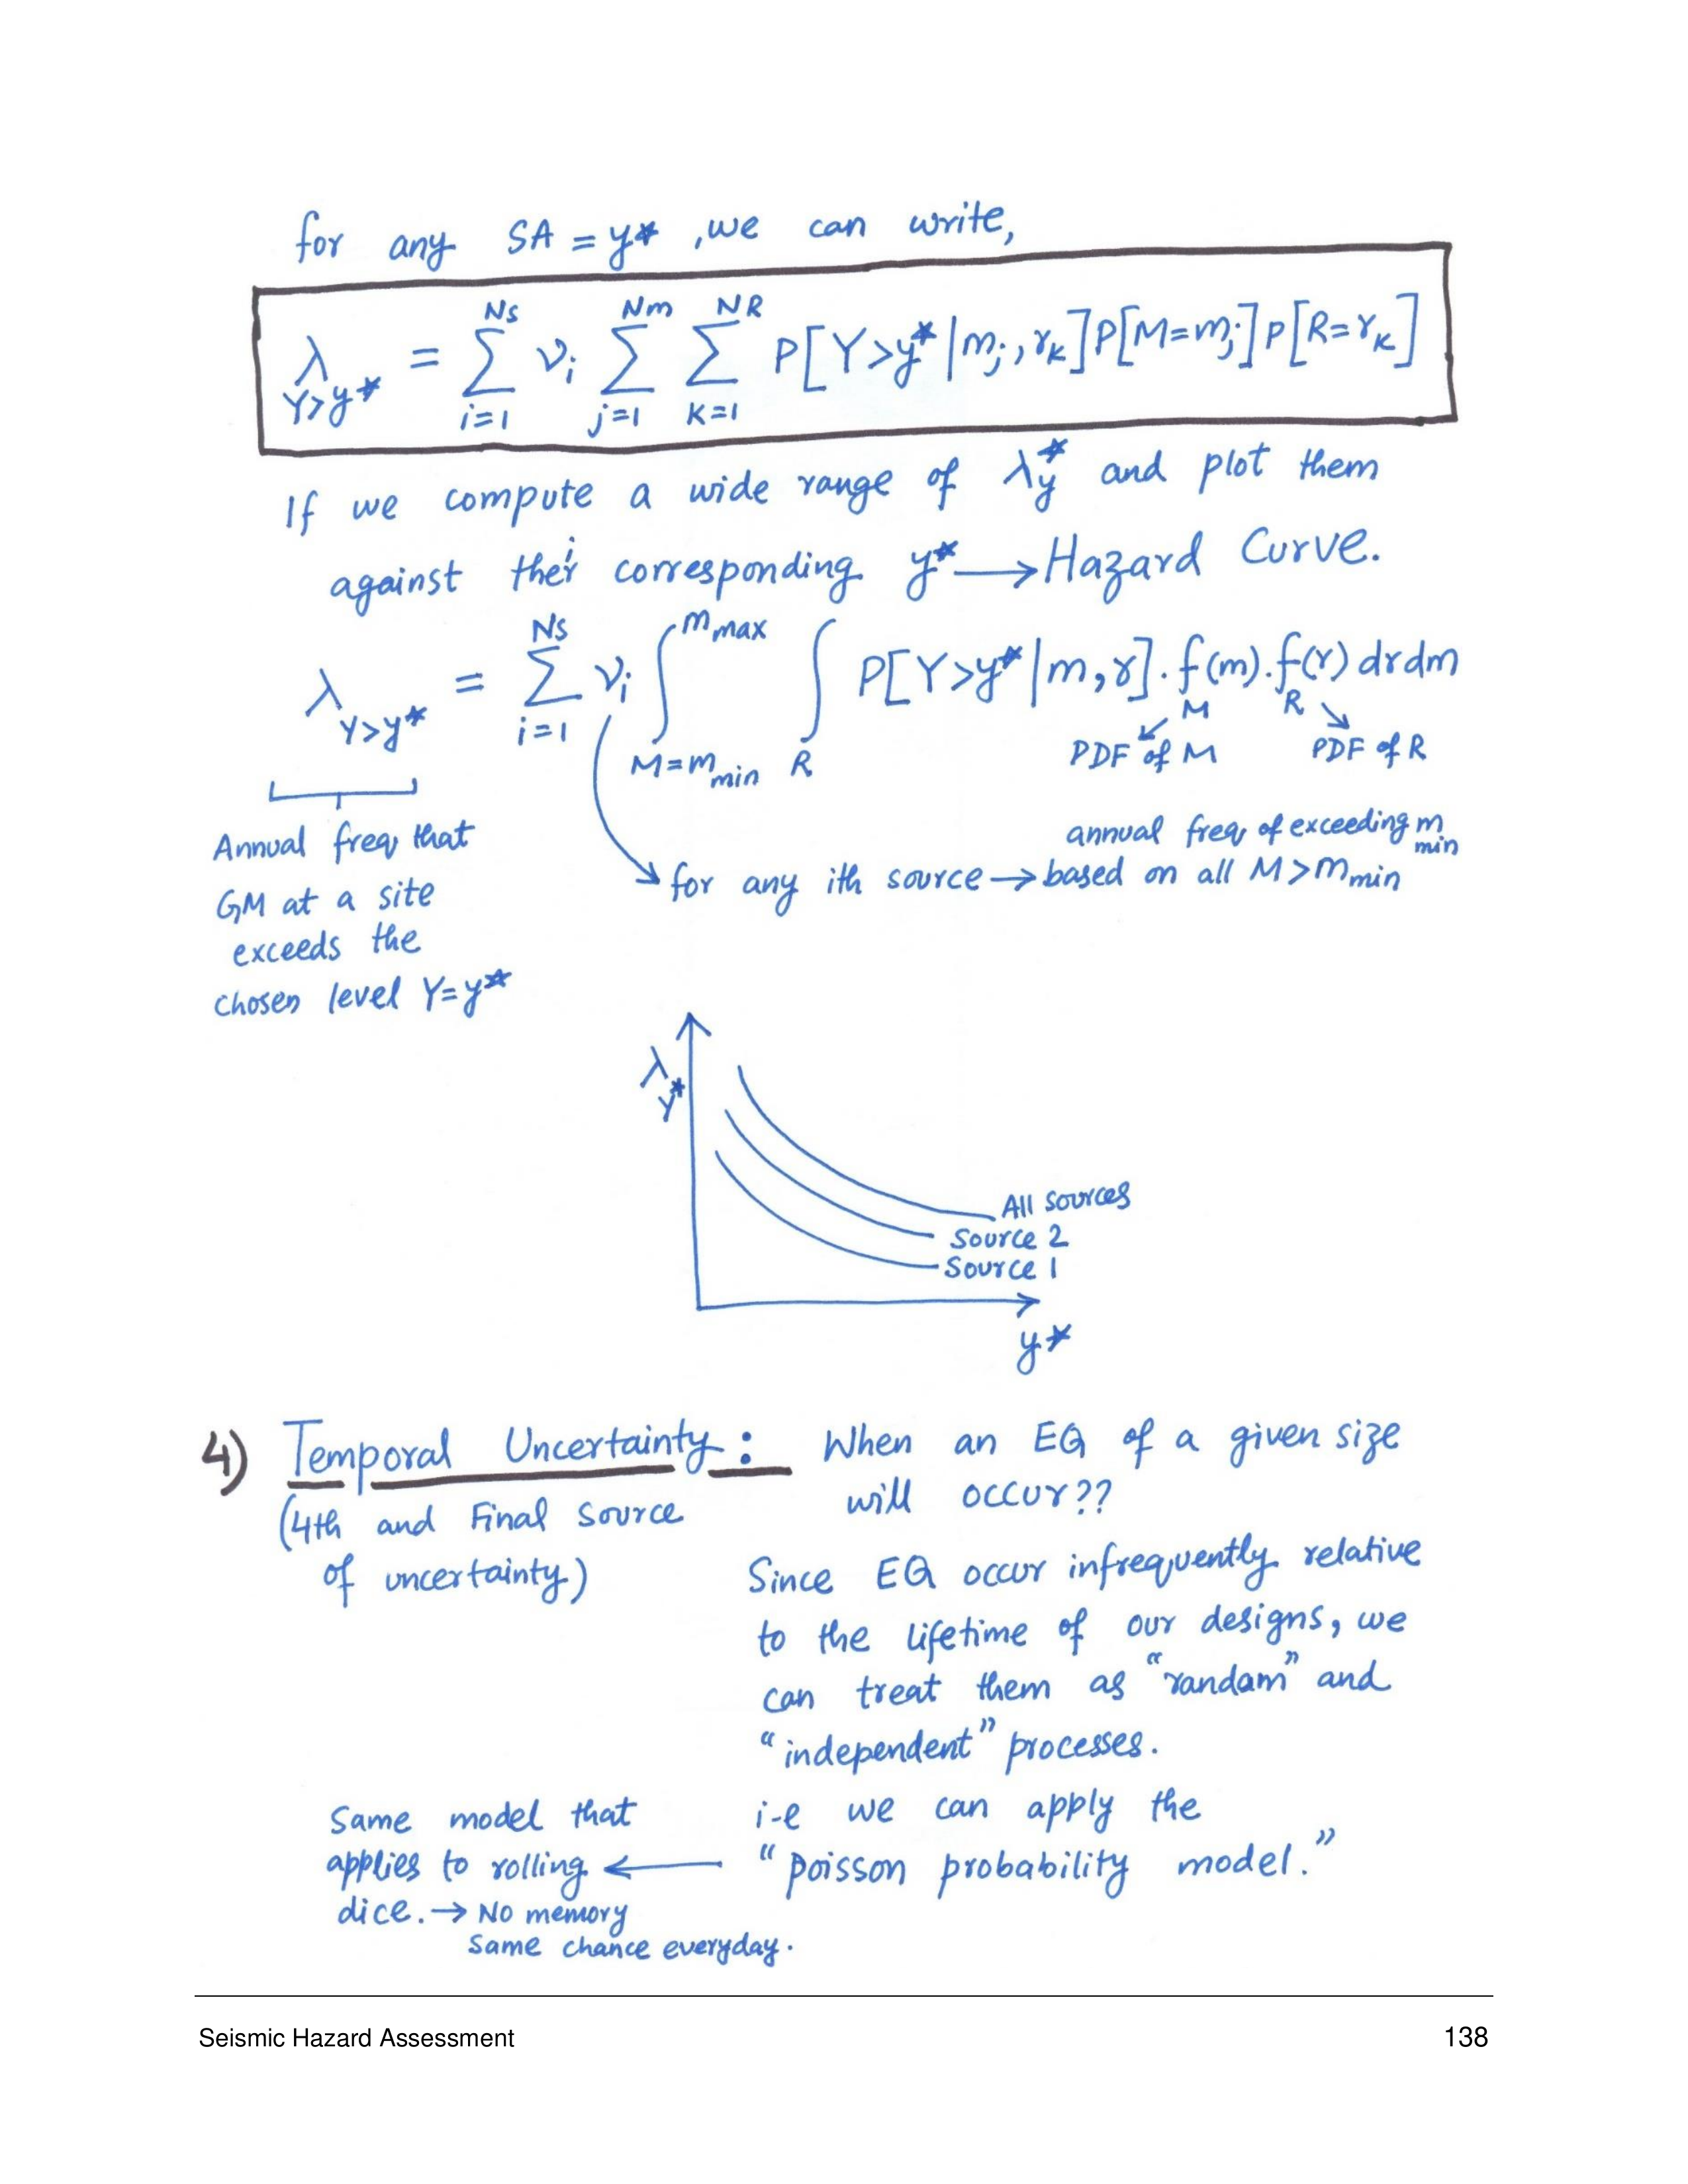 for any SA = y* , we can write,
λ_{Y>y*} = Σ_{i=1}^{Ns} ν_i Σ_{j=1}^{Nm} Σ_{K=1}^{NR} P[Y>y* | m_j, r_K] P[M=m_j] P[R=r_K]
If we compute a wide range of λ_y* and plot them
against their corresponding y* → Hazard Curve.
λ_{Y>y*} = Σ_{i=1}^{Ns} ν_i ∫_{M=m_min}^{m_max} ∫_R P[Y>y* | m, r] . f_M(m) . f_R(r) dr dm
PDF of M PDF of R
Annual freq that
GM at a site
exceeds the
chosen level Y=y*
annual freq of exceeding m_min
for any ith source → based on all M > m_min
λ_y*
All sources
Source 2
Source 1
y*
4) Temporal Uncertainty : When an EQ of a given size
will occur??
(4th and Final source
of uncertainty)
Since EQ occur infrequently relative
to the lifetime of our designs, we
can treat them as "randam" and
"independent" processes.
i-e we can apply the
"poisson probability model."
Same model that
applies to rolling ←
dice. → No memory
Same chance everyday.
Seismic Hazard Assessment 138